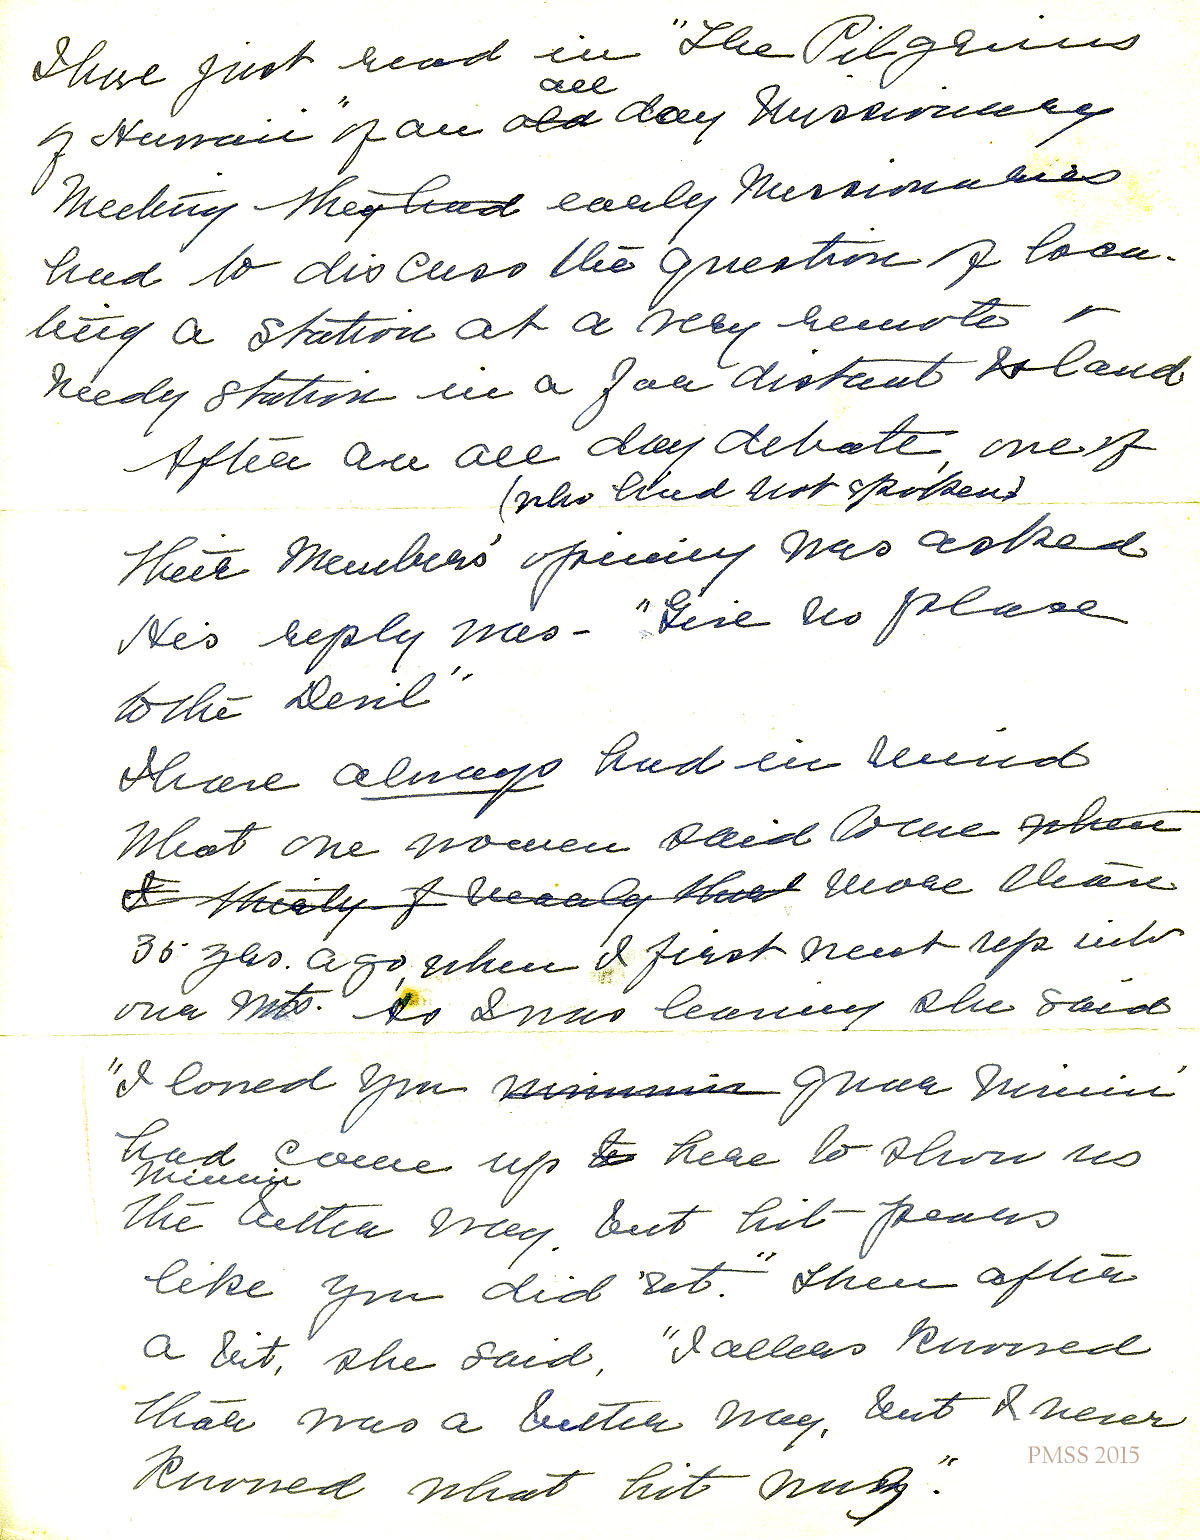 I have just read in "The Pilgrims
all
of Hawaii" of an old day Missionary
Meeting they had early Missionaries
had to discuss the question of loca-
ting a station at a very remote &
needy station in a far distant Island
After an all day debate, one of
(who had not spoken)
their Members' opining was asked
His reply was - "Give no place
to the Devil"
I have always had in mind
What one women said to me when
I thirty of nearly that more than
35 yrs. ago, when I first went up into
our Mts. As I was leaving she said
"I lowed you wimmin quar
had come up to here to show us
the better way, but hit pears
like you did 'nt." Then after
a bit, she said, "I allers knowed
thar was a better way, but I never
knowed what hit wuz".
PMSS 2015